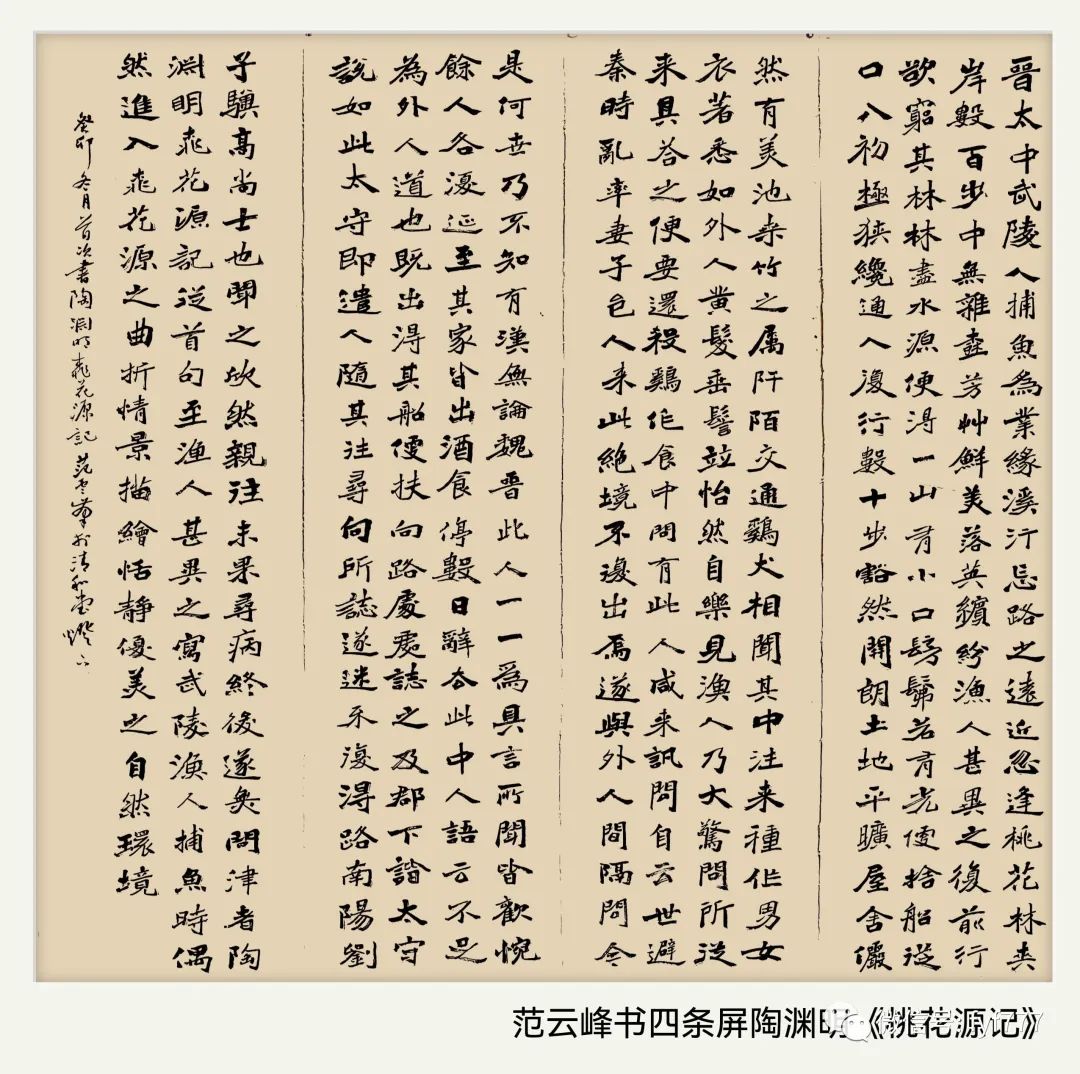 晉太中武陵人捕魚為業緣溪行忘路之遠近忽逢桃花林夾
岸數百步中無雜樹芳艸鮮美落英繽紛漁人甚異之復前行
欲窮其林林盡水源便得一山有小口髣髴若有光便捨船從
口入初極狹纔通人復行數十步豁然開朗土地平曠屋舍儼
然有美池桑竹之属阡陌交通鷄犬相聞其中往来種作男女
衣著悉如外人黄髮垂髫竝怡然自樂見漁人乃大驚問所從
来具答之便要還殺鷄作食中問有此人咸来訊問自云世避
秦時亂率妻子邑人来此絶境不復出焉遂與外人間隔問今
是何世乃不知有漢無論魏晉此人一一為具言所聞皆歎惋
餘人各復延至其家皆出酒食停數日辭去此中人語云不足
為外人道也既出得其船便扶向路處處誌之及郡下詣太守
說如此太守即遣人隨其往尋向所誌遂迷不復得路南陽劉
子驥高尚士也聞之欣然親往未果尋病終後遂無問津者陶
淵明桃花源記從首句至漁人甚異之寫武陵漁人捕魚時偶
然進入桃花源之曲折情景描繪恬靜優美之自然環境
癸卯冬月首次書陶淵明桃花源記 范雲峰於清和堂燈下
范云峰书四条屏陶渊明《桃花源记》